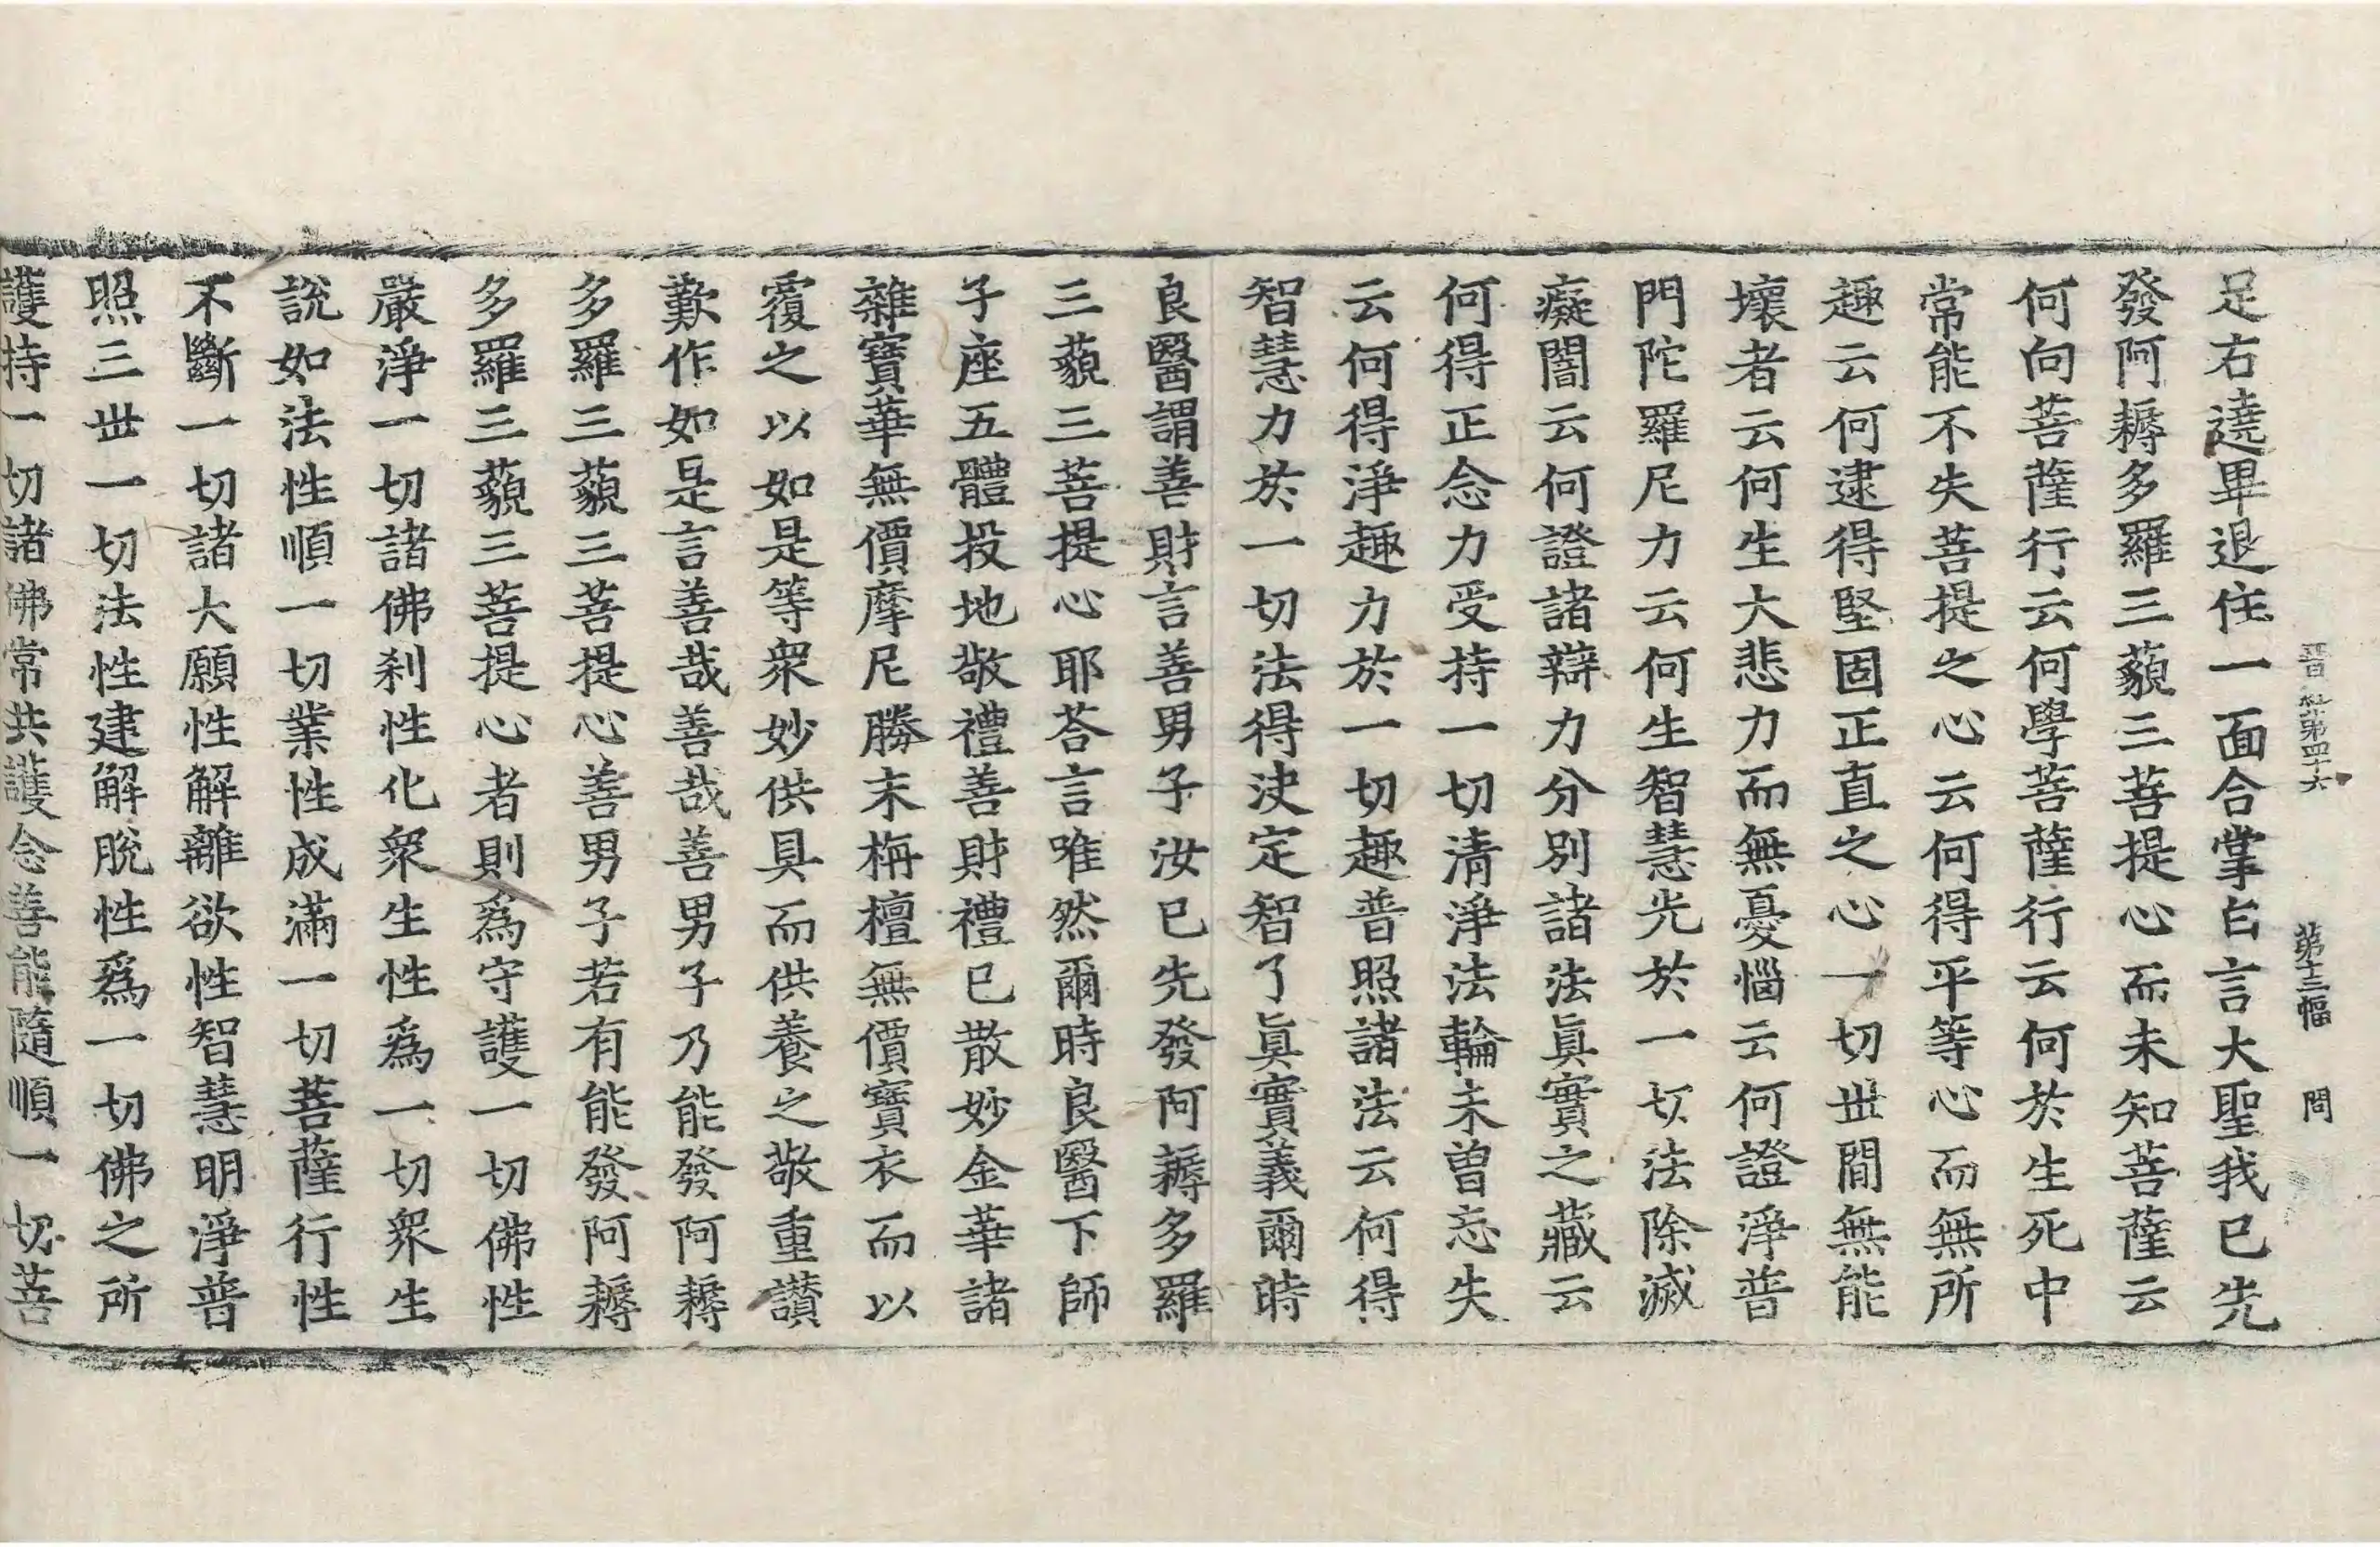 晉経第四十六 第十三幅 問
足右遶畢退住一面合掌白言大聖我已先
發阿耨多羅三藐三菩提心而未知菩薩云
何向菩薩行云何學菩薩行云何於生死中
常能不失菩提之心云何得平等心而無所
趣云何逮得堅固正直之心一切世間無能
壞者云何生大悲力而無憂惱云何證淨普
門陀羅尼力云何生智慧光於一切法除滅
癡闇云何證諸辯力分別諸法眞實之藏云
何得正念力受持一切清淨法輪未曾忘失
云何得淨趣力於一切趣普照諸法云何得
智慧力於一切法得決定智了眞實義爾時
良醫謂善財言善男子汝已先發阿耨多羅
三藐三菩提心耶荅言唯然爾時良醫下師
子座五體投地敬禮善財禮已散妙金華諸
雜寶華無價摩尼勝末栴檀無價寶衣而以
覆之以如是等衆妙供具而供養之敬重讃
歎作如是言善哉善哉善男子乃能發阿耨
多羅三藐三菩提心善男子若有能發阿耨
多羅三藐三菩提心者則爲守護一切佛性
嚴淨一切諸佛刹性化衆生性爲一切衆生
說如法性順一切業性成滿一切菩薩行性
不斷一切諸大願性解離欲性智慧明淨普
照三世一切法性建解脫性爲一切佛之所
護持一切諸佛常共護念善能隨順一切菩